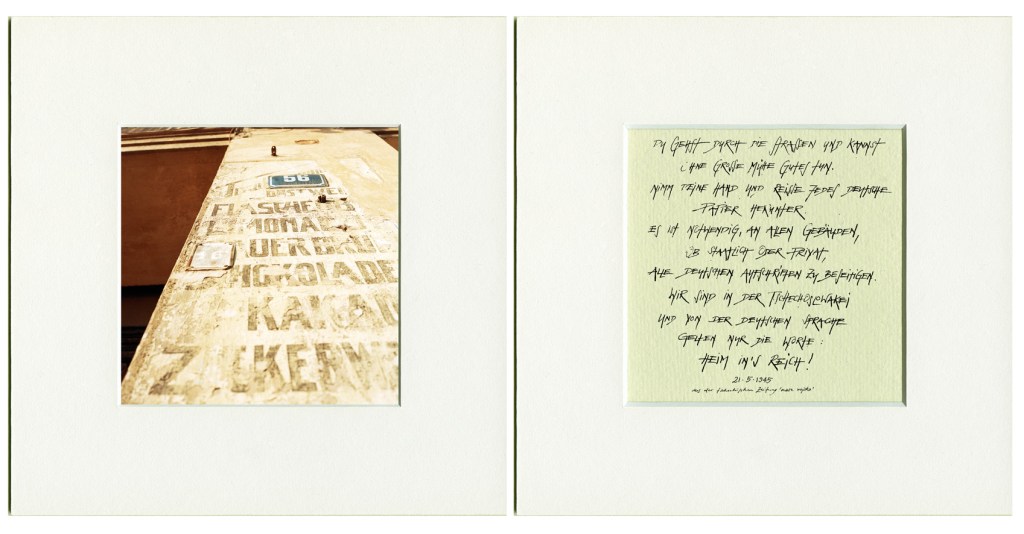 56
FLASCHE
LIMONA
KAKAO
ZUCKERW
DU GEHST DURCH DIE STRASSEN UND KANNST
OHNE GROSSE MÜHE GUTES TUN.
NIMM DEINE HAND UND REISSE JEDES DEUTSCHE
PAPIER HERUNTER.
ES IST NOTWENDIG, AN ALLEN GEBÄUDEN,
OB STAATLICH ODER PRIVAT,
ALLE DEUTSCHEN AUFSCHRIFTEN ZU BESEITIGEN.
WIR SIND IN DER TSCHECHOSLOWAKEI
UND VON DER DEUTSCHEN SPRACHE
GELTEN NUR DIE WORTE:
HEIM IN'S REICH!
21.5.1945
aus der tschechischen Zeitung